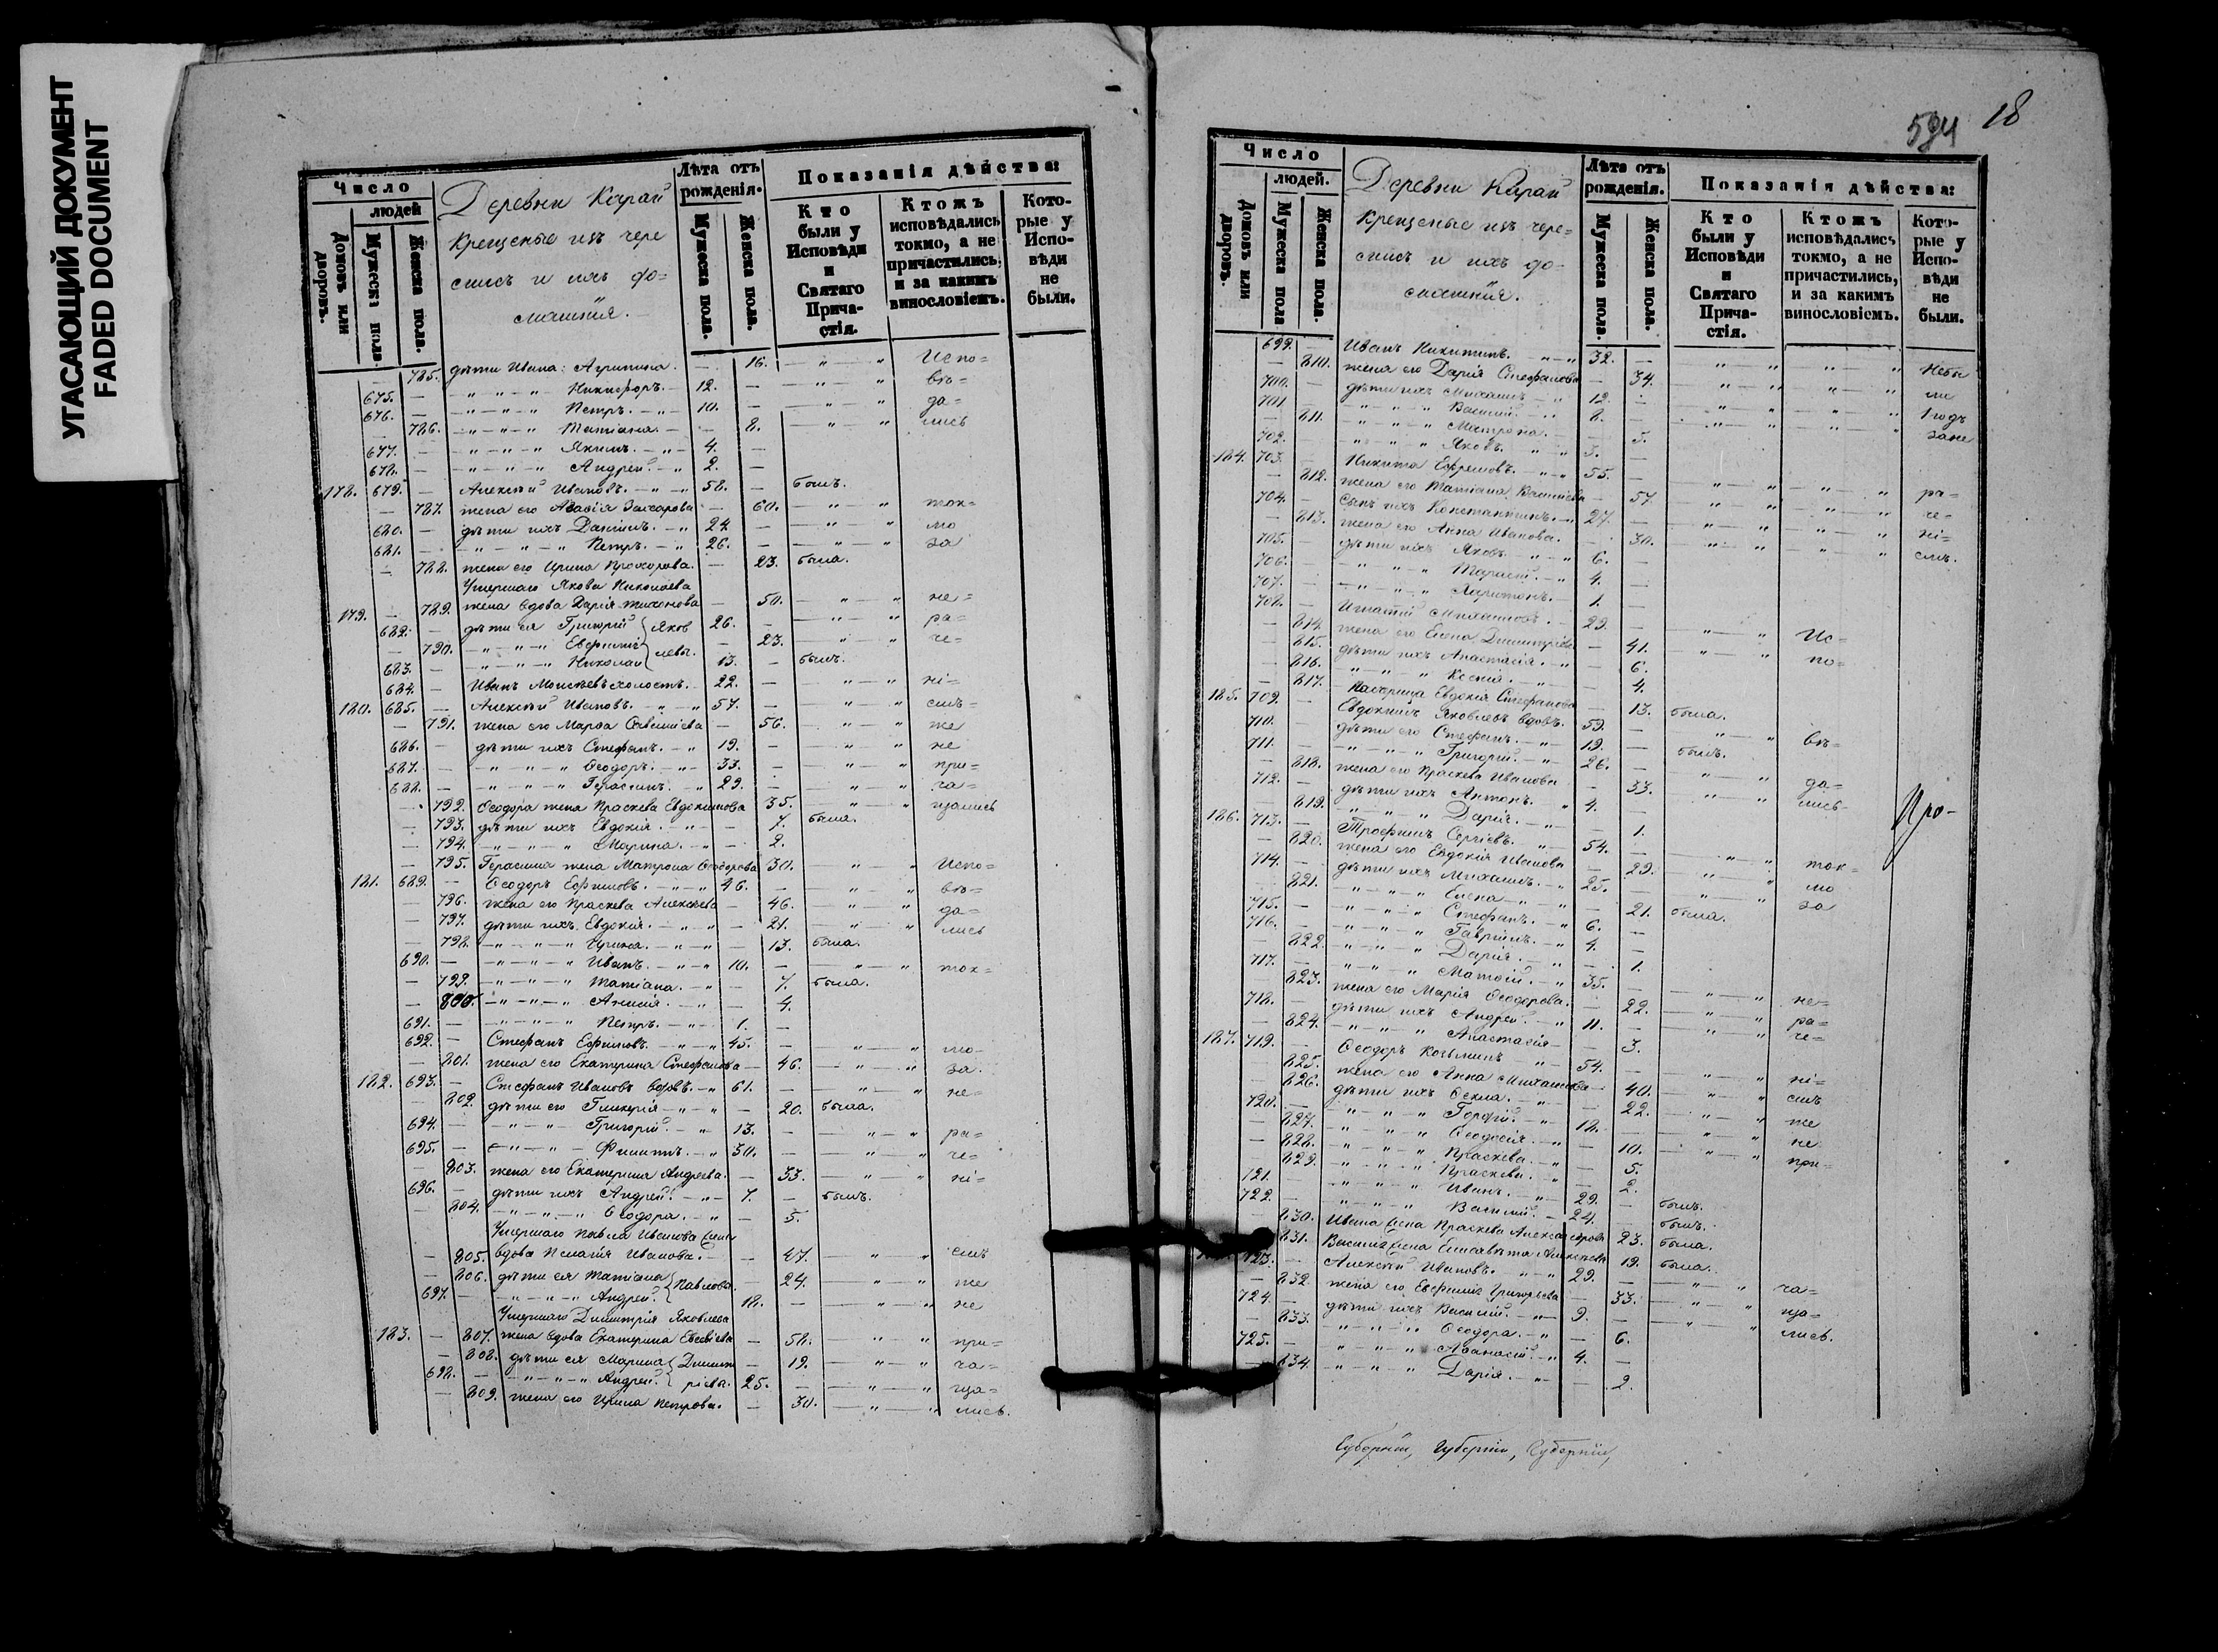 УГАСАЮЩИЙ ДОКУМЕНТ
FADED DOCUMENT
Число
людей
Домовъ или дворовъ.
Мужеска пола
Женска пола.
Деревни Карай
крещеные изъ чере
мисъ и ихъ до=
машнія.
Лѣта отъ рожденія.
Мужеска пола.
Женска пола.
Показанія дѣйства:
Кто были у Исповѣди и Святаго Причастія.
Ктожъ исповѣдались токмо, а не причастились, и за какимъ винословіемъ.
Которые у Исповѣди не были.
— 785. дѣти Ивана: Агрипина. — 16. — " — " Испо=
675. — — " — " — " Никифоръ. — 12. — — " — " вѣ=
676. — — " — " — " Петръ. — " — 10. — — " — " да=
— 786. — " — " — " Татіана. — — 8. — " — " лись
677. — — " — " — " Якимъ. — " — 4. —
678. — — " — " — " Андрей. — " 2. —
178. 679. — Алексѣй Ивановъ. — " — " 58. — былъ.
— 787. жена его Агаѳія Захарова — 60. — " — " ток=
680. — дѣти ихъ Даніилъ. — " 24. — — " — " мо
681. — — " — " — " Петръ. — " 26. — — " — " за
— 788. жена его Ирина Прохорова. — 23. была.
Умершаго Якова Николаева
179. — 789. жена вдова Дарія Тихонова — 50. — " — " не=
682. — дѣти ея Григорій Яков 26. — — " — " ра=
— 790. — " — " — " Евфимія левы. — 23. — " — " че=
683. — — " — " — " Николай 13. — былъ.
684. — Иванъ Моисѣевъ холостъ. 22. — — " — " ні=
180. 685. — Алексѣй Ивановъ. — " — " 57. — — " — " емъ=
— 791. жена его Марѳа Савельева — 56. — " — " же
686. — дѣти ихъ Стефанъ. — " 19. — — " — " не
687. — — " — " — " Ѳеодоръ. — " — 33. — — " — " при=
688. — — " — " — " Герасимъ. — " 29. — — " — " ча=
— 792. Ѳеодора жена Праскева Евдокимова 35. — " — " щались
— 793. дѣти ихъ Евдокія. — " — — 7. была.
— 794. — " — " — " Марина. — " — 2.
— 795. Герасима жена Матрона Ѳеодорова 30. — " — " Испо=
181. 689. — Ѳеодоръ Ефимовъ. — " — " 46. — — " — " вѣ=
— 796. жена его Праскева Алексѣева — 46. — " — " да=
— 797. дѣти ихъ Евдокія. — " — " — 21. — " — " лись
— 798. — " — " — " Ирина. — " — " — 13. была.
690. — — " — " — " Иванъ. — " — " 10. — — " — " ток=
— 799. — " — " — " Татіана. — " — 7. была.
— 800. — " — " — " Анисія. — " — 4.
691. — — " — " — " Петръ. — " — 1. —
692. — Стефанъ Ефимовъ. — " — " 45. — — " — " мо-
— 801. жена его Екатерина Стефанова — 46. — " — " за.
182. 693. — Стефанъ Ивановъ вдовъ. — " 61. — — " — " не=
— 802. дѣти его Гликерія — " — " — 20. была.
694. — — " — " — Григорій. — " 13. — — " — " ра=
695. — — " — " — Филиппъ. — " 30. — — " — " че=
— 803. жена его Екатерина Андреева. — 33. — " — " ні=
696. — дѣти ихъ Андрей. — " — 7. — былъ.
— 804. — " — " — " Ѳеодора. — " — 5.
Умершаго Павла Иванова жена
— 805. вдова Пелагія Иванова. — — 47. " — " емъ
— 806. дѣти ея Татіана Павлова. — 24. " — " же
697. — — " — " — " Андрей. 18. — " — " не
Умершаго Димитрія Яковлева
183. — 807. жена вдова Екатерина Евсевіева — 58. " — " при=
— 808. дѣти ея Марина Димит — 19. " — " ча=
698. — — " — " — " Андрей. ріевы. 25. — — " — " ща=
— 809. жена его Ирина Петрова. — 30. — " — " лись.
594 18
Число
людей.
Домовъ или дворовъ.
Мужеска пола
Женска пола.
Деревни Карай
крещеные изъ чере=
мисъ и ихъ до=
машнія.
Лѣта отъ рожденія.
Мужеска пола.
Женска пола.
Показанія дѣйства:
Кто были у Исповѣди и Святаго Причастія.
Ктожъ исповѣдались токмо, а не причастились, и за какимъ винословіемъ.
Которые у Исповѣди не были.
699. — Иванъ Никитинъ. — " — " 32. — " — " " — " Небы
— 810. жена его Дарія Стефанова — 34. " — " " — " ли
700. — дѣти ихъ Михаилъ — " 12. — " — " " — " 1 годъ
701 — — " — " — " Василій. — " 8. — " — " " — " зане
— 811. — " — " — " Матрона. — 5.
702. — " — " — " Яковъ. — " — " 3. —
184. 703. — Никита Ефремовъ. — " — " 55. — " — " " — " ра=
— 812. жена его Татіана Васильева — 57. " — " " — " че=
704. — сынъ ихъ Константинъ. — " 27. — " — " " — " ні=
— 813. жена его Анна Иванова. — 30. " — " " — " емъ.
705. — дѣти ихъ Яковъ. — " — " 6. —
706. — — " — " — " Тарасій. — " 4. —
707. — — " — " — " Харитонъ. — 1. —
708. — Игнатій Михаиловъ. — " 29. — " — " Ис=
— 814. жена его Елена Димитріева — 41. " — " по=
— 815. дѣти ихъ Анастасія. — " — 6.
— 816. " — " — " Ксенія. — " — 4.
— 817. Падчерица Евдокія Стефанова — 13. была.
185. 709. — Евдокимъ Яковлевъ вдовъ. 59. — " — " вѣ=
710. — дѣти его Стефанъ. — " — 19. — былъ.
711. — — " — " — " Григорій. — " — 26. — " — " да=
— 818. жена его Праскева Иванова — 33. " — " лись-
712. — дѣти ихъ Антонъ. — " 4. —
— 819. " — " — " Дарія. — " — 1.
186. 713. — Трофимъ Сергіевъ. — " 54. — " — " ток=
— 820. жена его Евдокія Иванова — 29. " — " мо
714. — дѣти ихъ Михаилъ. — " 25. — " — " за
— 821. " — " — " Елена — " — 21. была.
715. — — " — " — " Стефанъ. — " 6. —
716. — — " — " — " Гавріилъ. — " 4. —
— 822. " — " — " Дарія. — " — 1.
717. — " — " — " Матѳій. — " 35. — " — " не=
— 823. жена его Марія Ѳеодорова. — 22. " — " ра=
718. — дѣти ихъ Андрей. — " 11. — " — " че=
— 824. — " — " — " Анастасія — — 3.
187. 719. — Ѳеодоръ Козьминъ — " 54. — " — " ні=
— 825. жена его Анна Михаилова — 40. " — " емъ
— 826. дѣти ихъ Ѳекла. — " — 22. " — " же
720. — — " — " — " Гордій. — " 18. — " — " не
— 827. " — " — " Ѳеодосія. — " — 10. " — " при=
— 828. — " — " — " Праскева. — " — 5.
— 829. — " — " — " Праскева. — " — 2.
721. — " — " — " Иванъ. — " — 29. — былъ.
722. — " — " — " Василій. — 24. — былъ.
— 830. Ивана жена Праскева Александрова 23. была.
— 831. Василія жена Елисавета Алексѣева 19. была.
723. — Алексѣй Ивановъ. — " — " 29. — " — " ча=
— 832. жена его Евфимія Григорьева — 33. — " — " ща=
724. — дѣти ихъ Василій. — " — 9. — " — " лись.
— 833. — " — " — " Ѳеодора. — " — 6.
725. — " — " — " Аѳанасій. — " 4. —
— 834. " — " — " Дарія. — " — 2.
Про-
Губерніи, Губерніи, Губерніи,